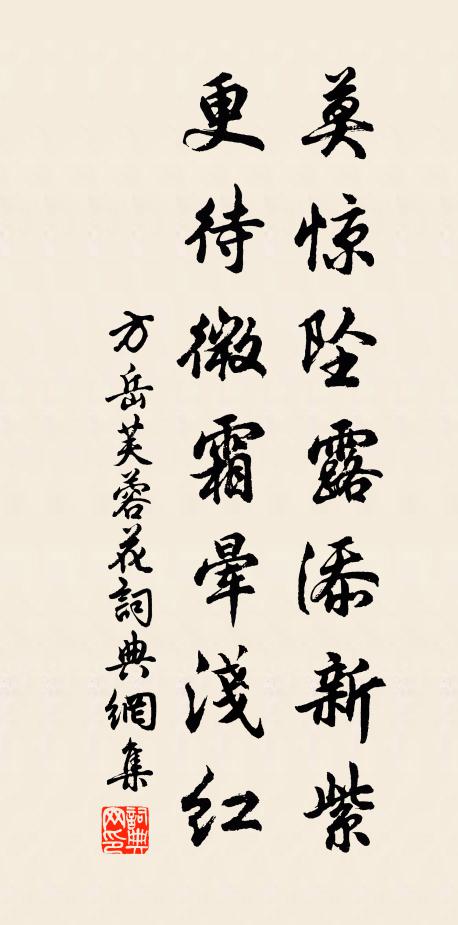 莫惊坠露添新紫
更待微霜晕浅红
方岳芙蓉花詞典網集
詞典网印